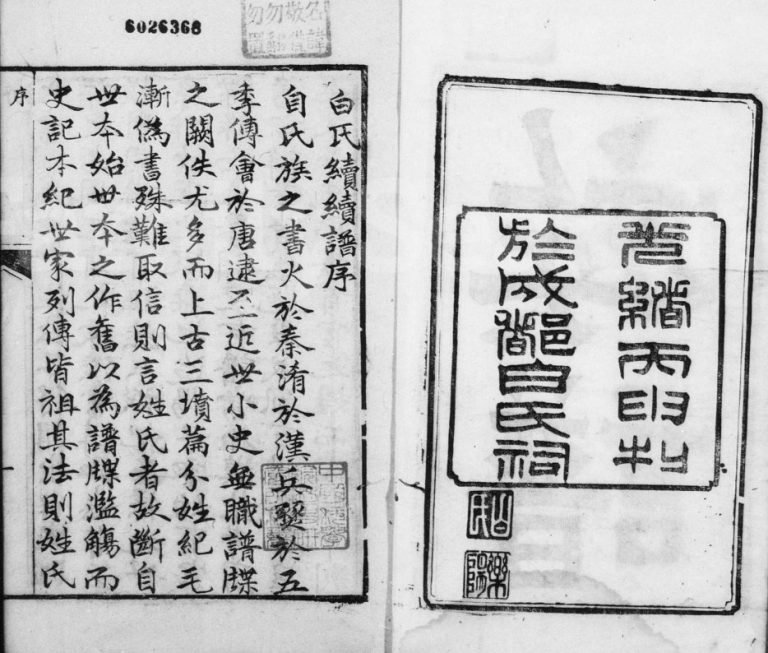 6026368
光緒丙申刊
於成都白氏祠
白氏續續譜序
自氏族之書火於秦淆於漢兵燹於五
季傅會於唐逮至近世小史無職譜牒
之闕佚尤多而上古三墳篇分姓紀毛
漸偽書殊難取信則言姓氏者故斷自
世本始世本之作舊以為譜牒濫觴而
史記本紀世家列傳皆祖其法則姓氏
序